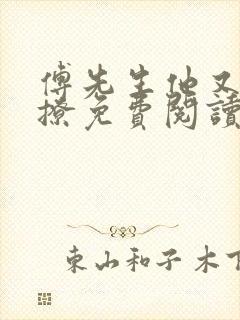 傅先生他又
撩免費閱讀
東山和子木下